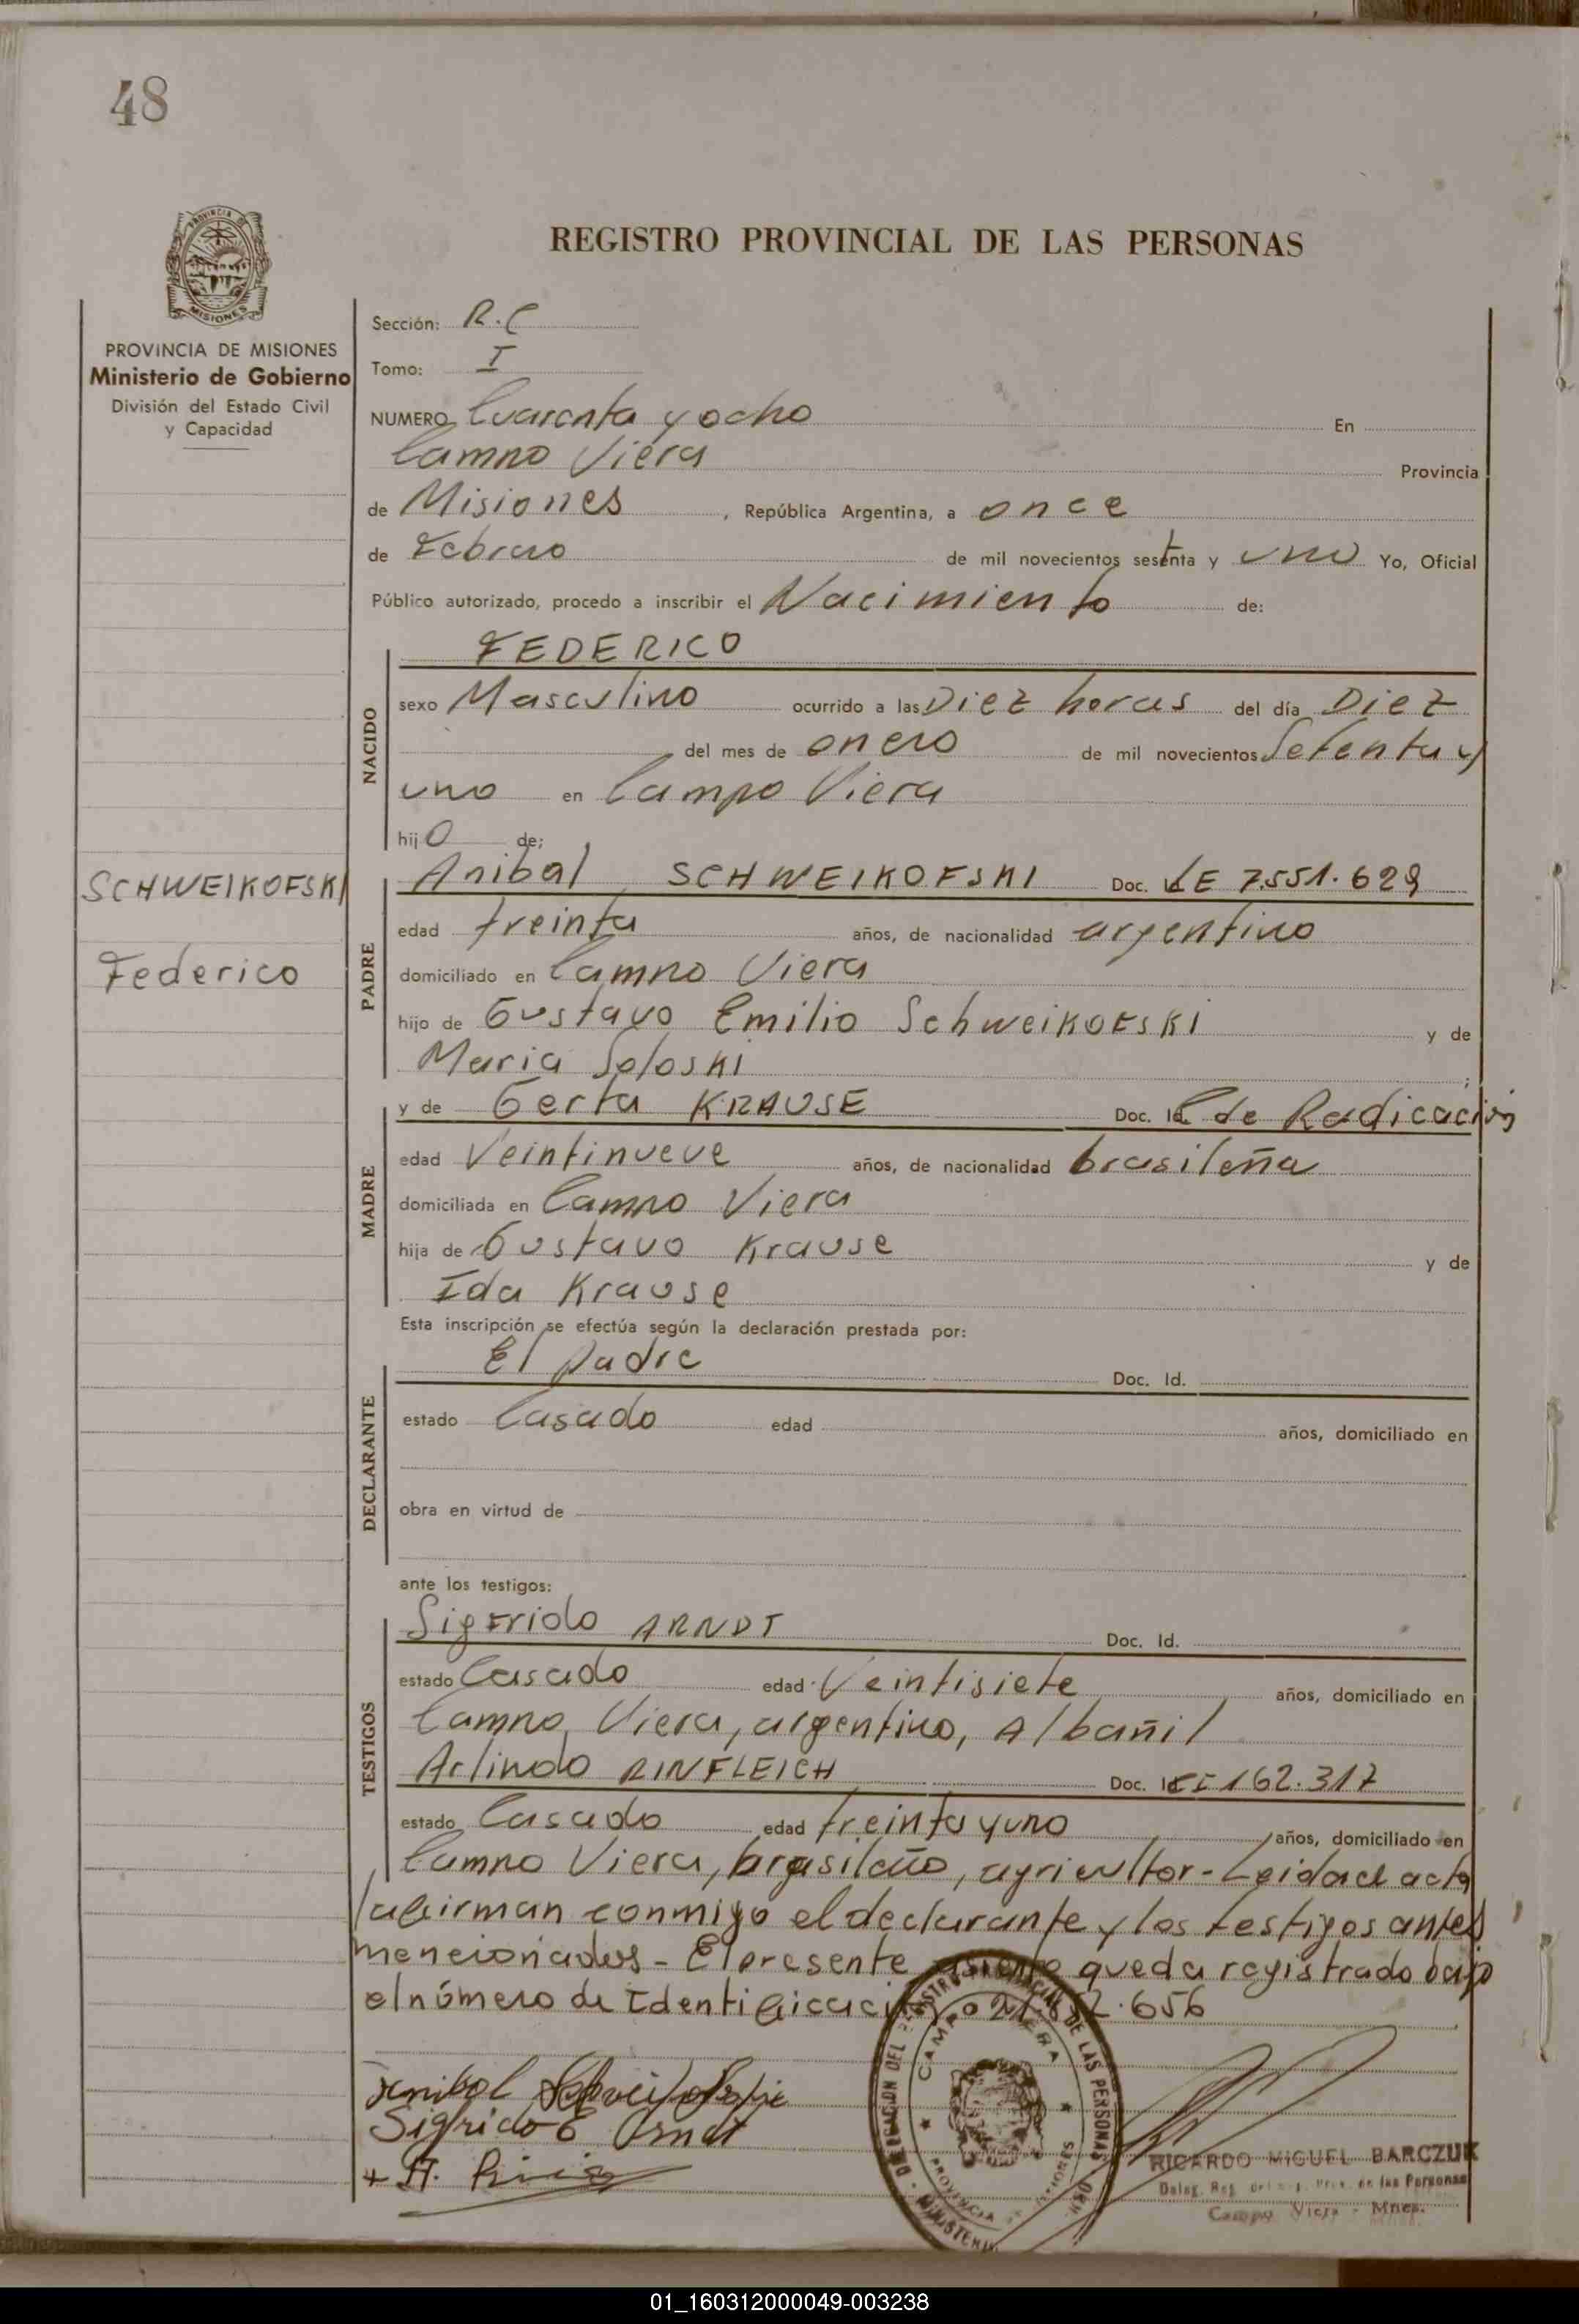 48
PROVINCIA DE
MISIONES
REGISTRO PROVINCIAL DE LAS PERSONAS
PROVINCIA DE MISIONES
Ministerio de Gobierno
División del Estado Civil
y Capacidad
Sección: R.C
Tomo: I
NUMERO Cuarenta y ocho En
Campo Viera Provincia
de Misiones, República Argentina, a once
de Febrero de mil novecientos setenta y uno Yo, Oficial
Público autorizado, procedo a inscribir el Nacimiento de:
NACIDO
FEDERICO
sexo Masculino ocurrido a las Diez horas del día Diez
del mes de enero de mil novecientos Setenta y
uno en Campo Viera
hijo de;
SCHWEIKOFSKI
Federico
PADRE
Anibal SCHWEIKOFSKI Doc. LE 7.551.629
edad treinta años, de nacionalidad argentino
domiciliado en Campo Viera
hijo de Gustavo Emilio Schweikofski y de
Maria Soloski;
MADRE
y de Gerta KRAUSE Doc. Id. C de Radicación
edad Veintinueve años, de nacionalidad brasileña
domiciliada en Campo Viera
hija de Gustavo Krause y de
Ida Krause
Esta inscripción se efectúa según la declaración prestada por:
DECLARANTE
El padre Doc. Id.
estado Casado edad años, domiciliado en
obra en virtud de
ante los testigos:
TESTIGOS
Sigfrido ARNDT Doc. Id.
estado Casado edad Veintisiete años, domiciliado en
Campo Viera, argentino, Albañil
Arlindo RINFLEICH Doc. Id. CI 162.317
estado Casado edad treinta y uno años, domiciliado en
Campo Viera, brasileño, agricultor - Leida el acta
la firman conmigo el declarante y los testigos antes
mencionados - El presente asiento queda registrado bajo
el número de Identificación 656
Anibal Schweikofski
Sigfrido E Arndt
+ A.
DELEGACION DEL REGISTRO PROVINCIAL DE LAS PERSONAS
CAMPO VIERA
PROVINCIA DE MISIONES
MINISTERIO
RICARDO MIGUEL BARCZUK
Deleg. Reg. Prov. de las Personas
Campo Viera - Mnes.
01_160312000049-003238